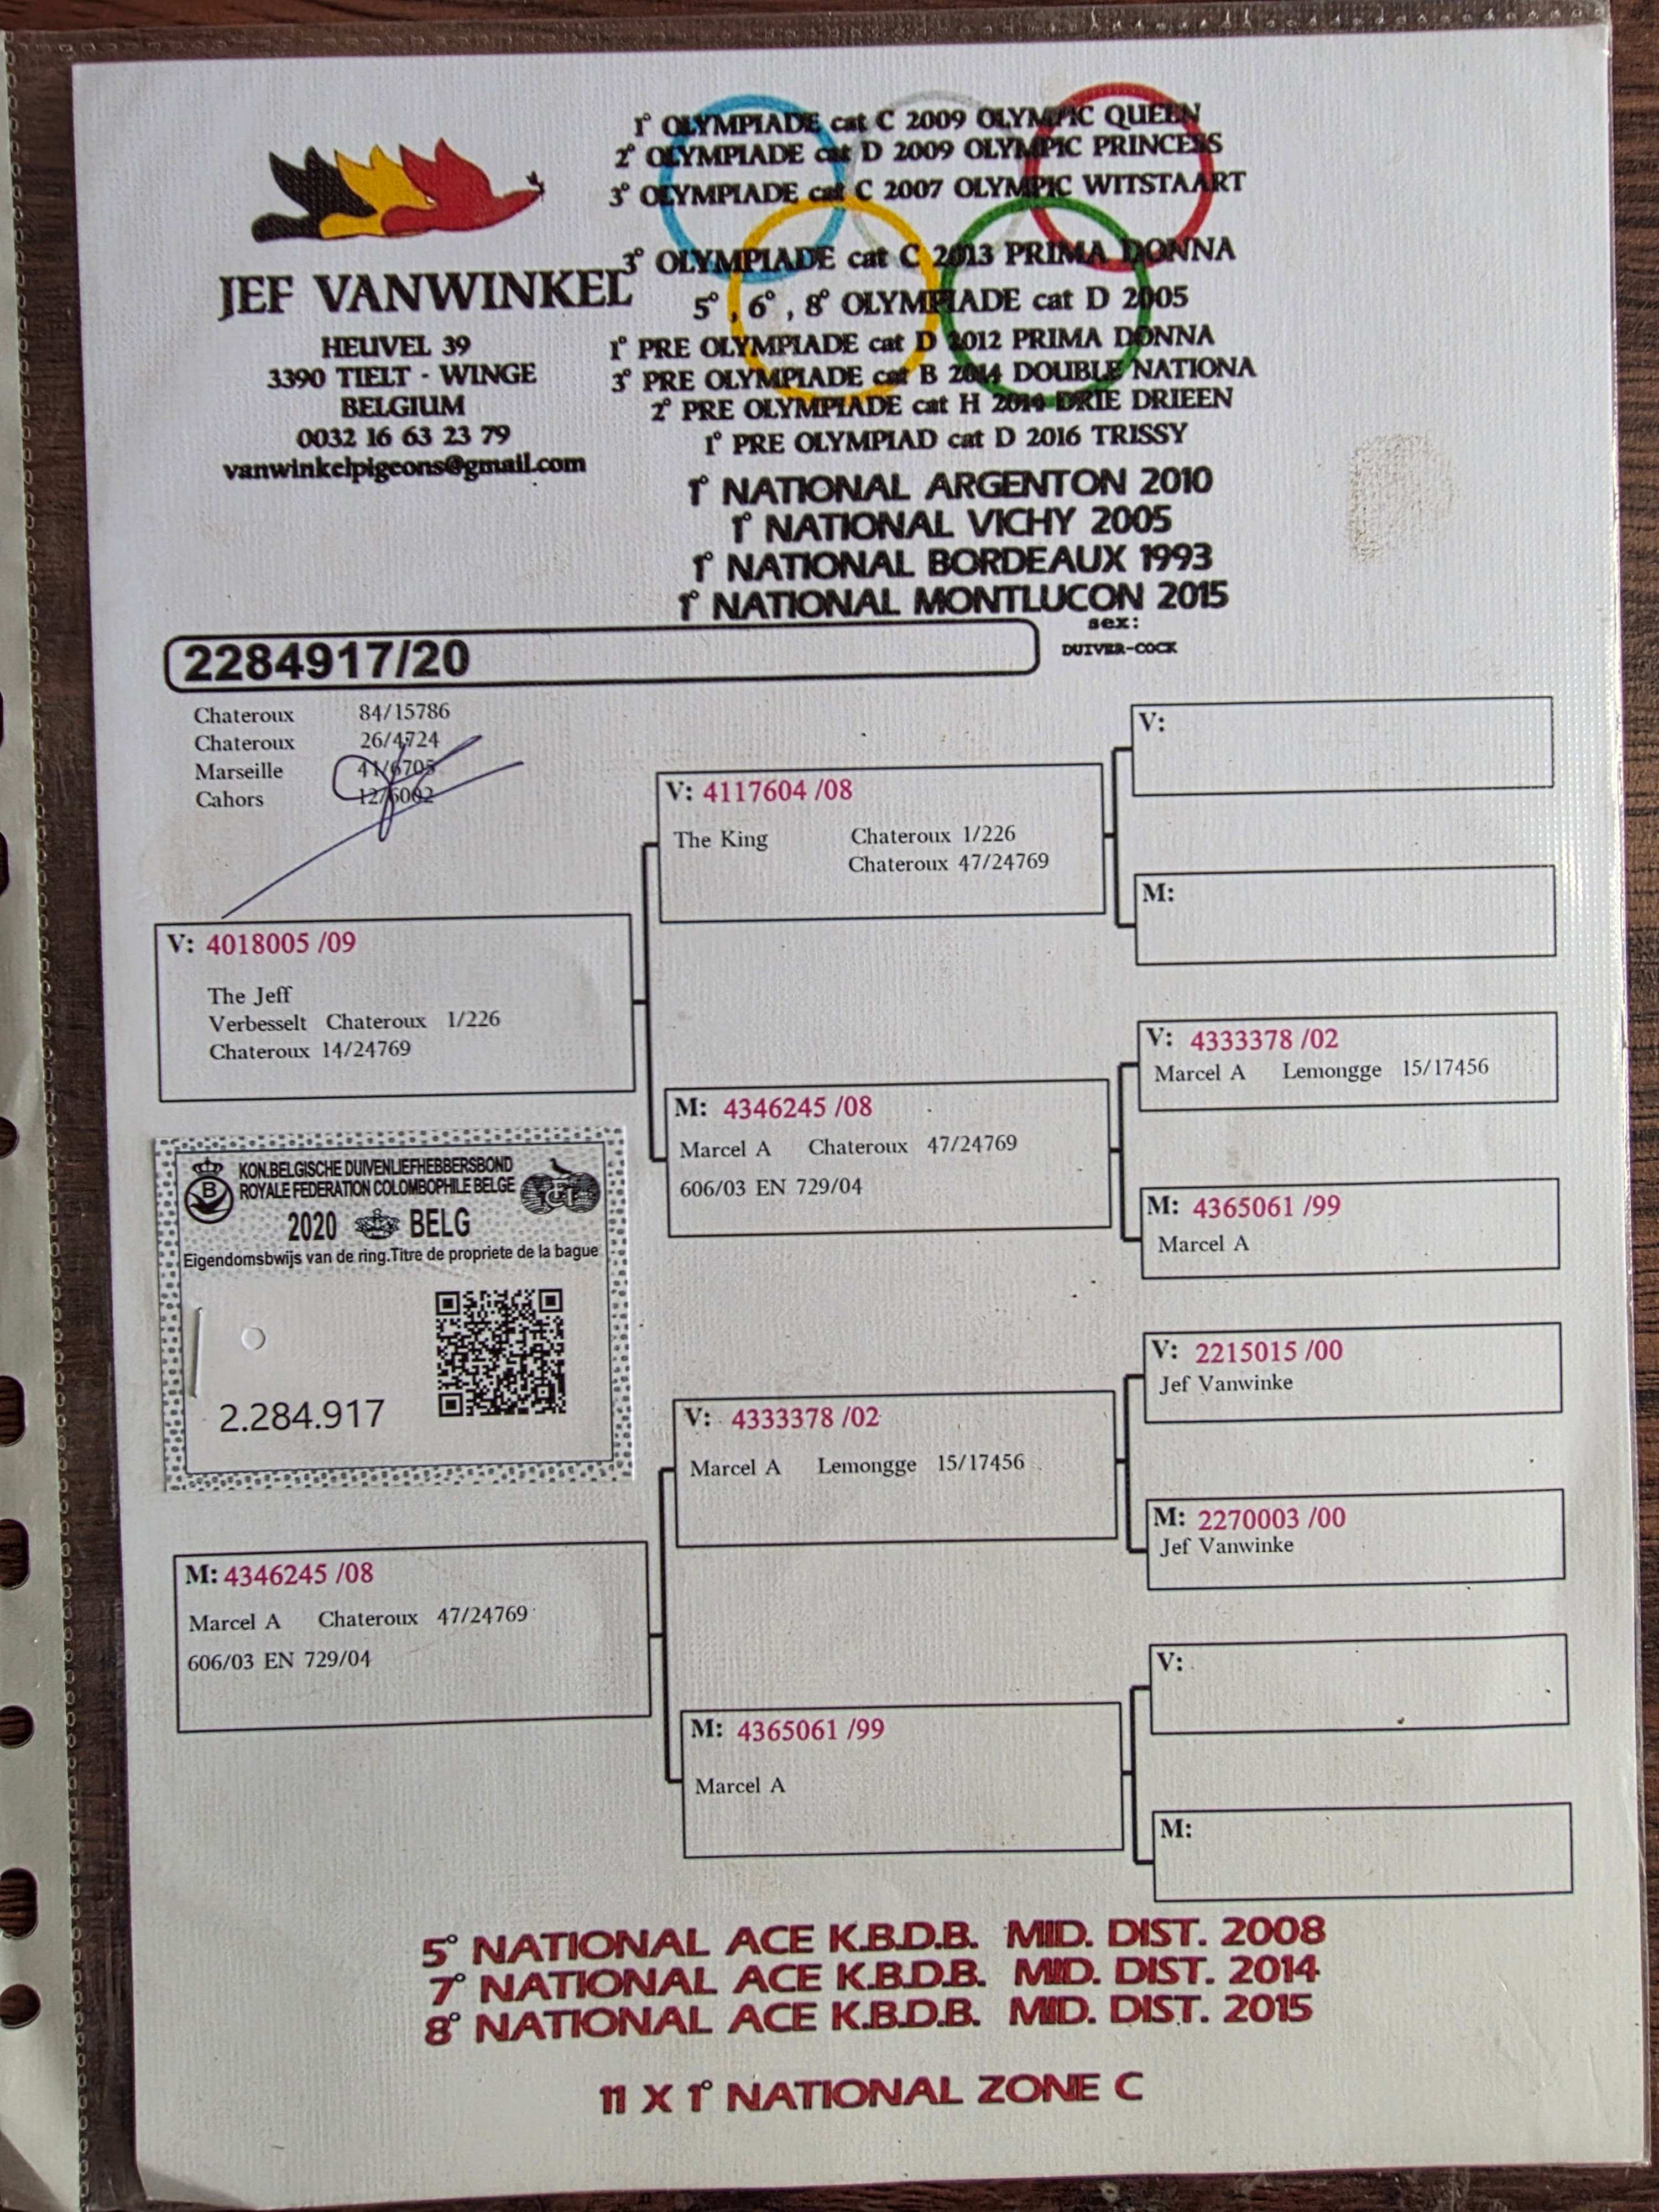 1° OLYMPIADE cat C 2009 OLYMPIC QUEEN
2° OLYMPIADE cat D 2009 OLYMPIC PRINCESS
3° OLYMPIADE cat C 2007 OLYMPIC WITSTAART
3° OLYMPIADE cat C 2013 PRIMA DONNA
5°, 6°, 8° OLYMPIADE cat D 2005
1° PRE OLYMPIADE cat D 2012 PRIMA DONNA
3° PRE OLYMPIADE cat B 2014 DOUBLE NATIONA
2° PRE OLYMPIADE cat H 2014 DRIE DRIEEN
1° PRE OLYMPIAD cat D 2016 TRISSY
1° NATIONAL ARGENTON 2010
1° NATIONAL VICHY 2005
1° NATIONAL BORDEAUX 1993
1° NATIONAL MONTLUCON 2015
JEF VANWINKEL
HEUVEL 39
3390 TIELT - WINGE
BELGIUM
0032 16 63 23 79
vanwinkelpigeons@gmail.com
2284917/20
sex:
DUIVER-COCK
Chateroux 84/15786
Chateroux 26/4724
Marseille 41/6705
Cahors 12/6002
V: 4018005 /09
The Jeff
Verbesselt Chateroux 1/226
Chateroux 14/24769
V: 4117604 /08
The King Chateroux 1/226
Chateroux 47/24769
V:
M:
M: 4346245 /08
Marcel A Chateroux 47/24769
606/03 EN 729/04
V: 4333378 /02
Marcel A Lemongge 15/17456
M: 4365061 /99
Marcel A
KON.BELGISCHE DUIVENLIEFHEBBERSBOND
ROYALE FEDERATION COLOMBOPHILE BELGE
B
2020 BELG
Eigendomsbwijs van de ring.Titre de propriete de la bague
2.284.917
M: 4346245 /08
Marcel A Chateroux 47/24769
606/03 EN 729/04
V: 4333378 /02
Marcel A Lemongge 15/17456
V: 2215015 /00
Jef Vanwinke
M: 2270003 /00
Jef Vanwinke
M: 4365061 /99
Marcel A
V:
M:
5° NATIONAL ACE K.B.D.B. MID. DIST. 2008
7° NATIONAL ACE K.B.D.B. MID. DIST. 2014
8° NATIONAL ACE K.B.D.B. MID. DIST. 2015
11 X 1° NATIONAL ZONE C